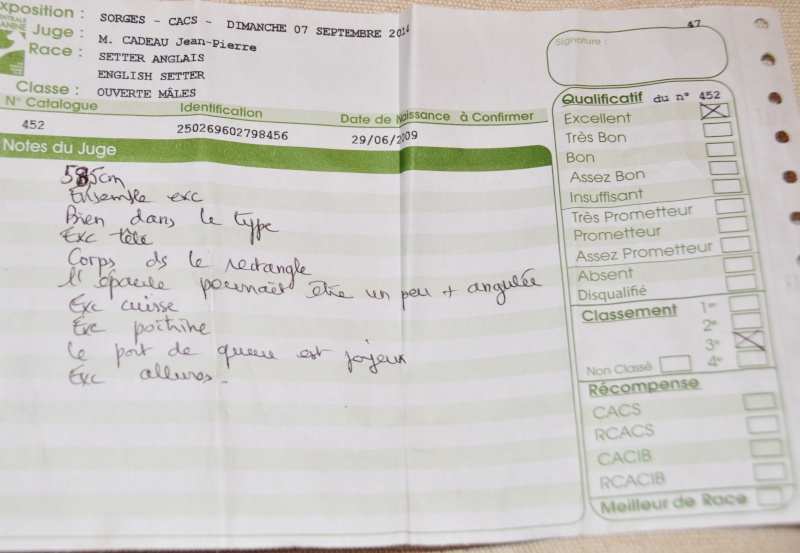 Exposition : SORGES - CACS - DIMANCHE 07 SEPTEMBRE 2014
Juge : M. CADEAU Jean-Pierre
Race : SETTER ANGLAIS
ENGLISH SETTER
Classe : OUVERTE MÂLES
N° Catalogue Identification Date de Naissance à Confirmer
452 250269602798456 29/06/2009
Notes du Juge
585cm
Ensemble exc
Bien dans le type
Exc tête
Corps ds le rectangle
l'épaule pourrait être un peu + angulée
Exc cuisse
Exc poitrine
Le port de queue est joyeux
Exc allures.
47
Signature :
Qualificatif du n° 452
Excellent
Très Bon
Bon
Assez Bon
Insuffisant
Très Prometteur
Prometteur
Assez Prometteur
Absent
Disqualifié
Classement 1er
2e
3e
Non Classé 4e
Récompense
CACS
RCACS
CACIB
RCACIB
Meilleur de Race